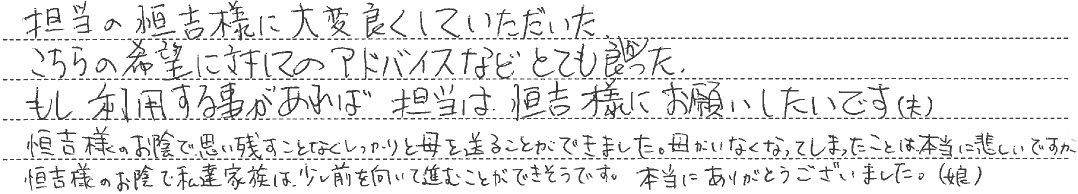 担当の恒吉様に大変良くしていただいた。
こちらの希望に対してのアドバイスなどとても良かった。
もし利用する事があれば担当は恒吉様にお願いしたいです(夫)
恒吉様のお陰で思い残すことなくしっかりと母を送ることができました。母がいなくなってしまったことは本当に悲しいですが
恒吉様のお陰で私達家族は少し前を向いて進むことができそうです。本当にありがとうございました。(娘)